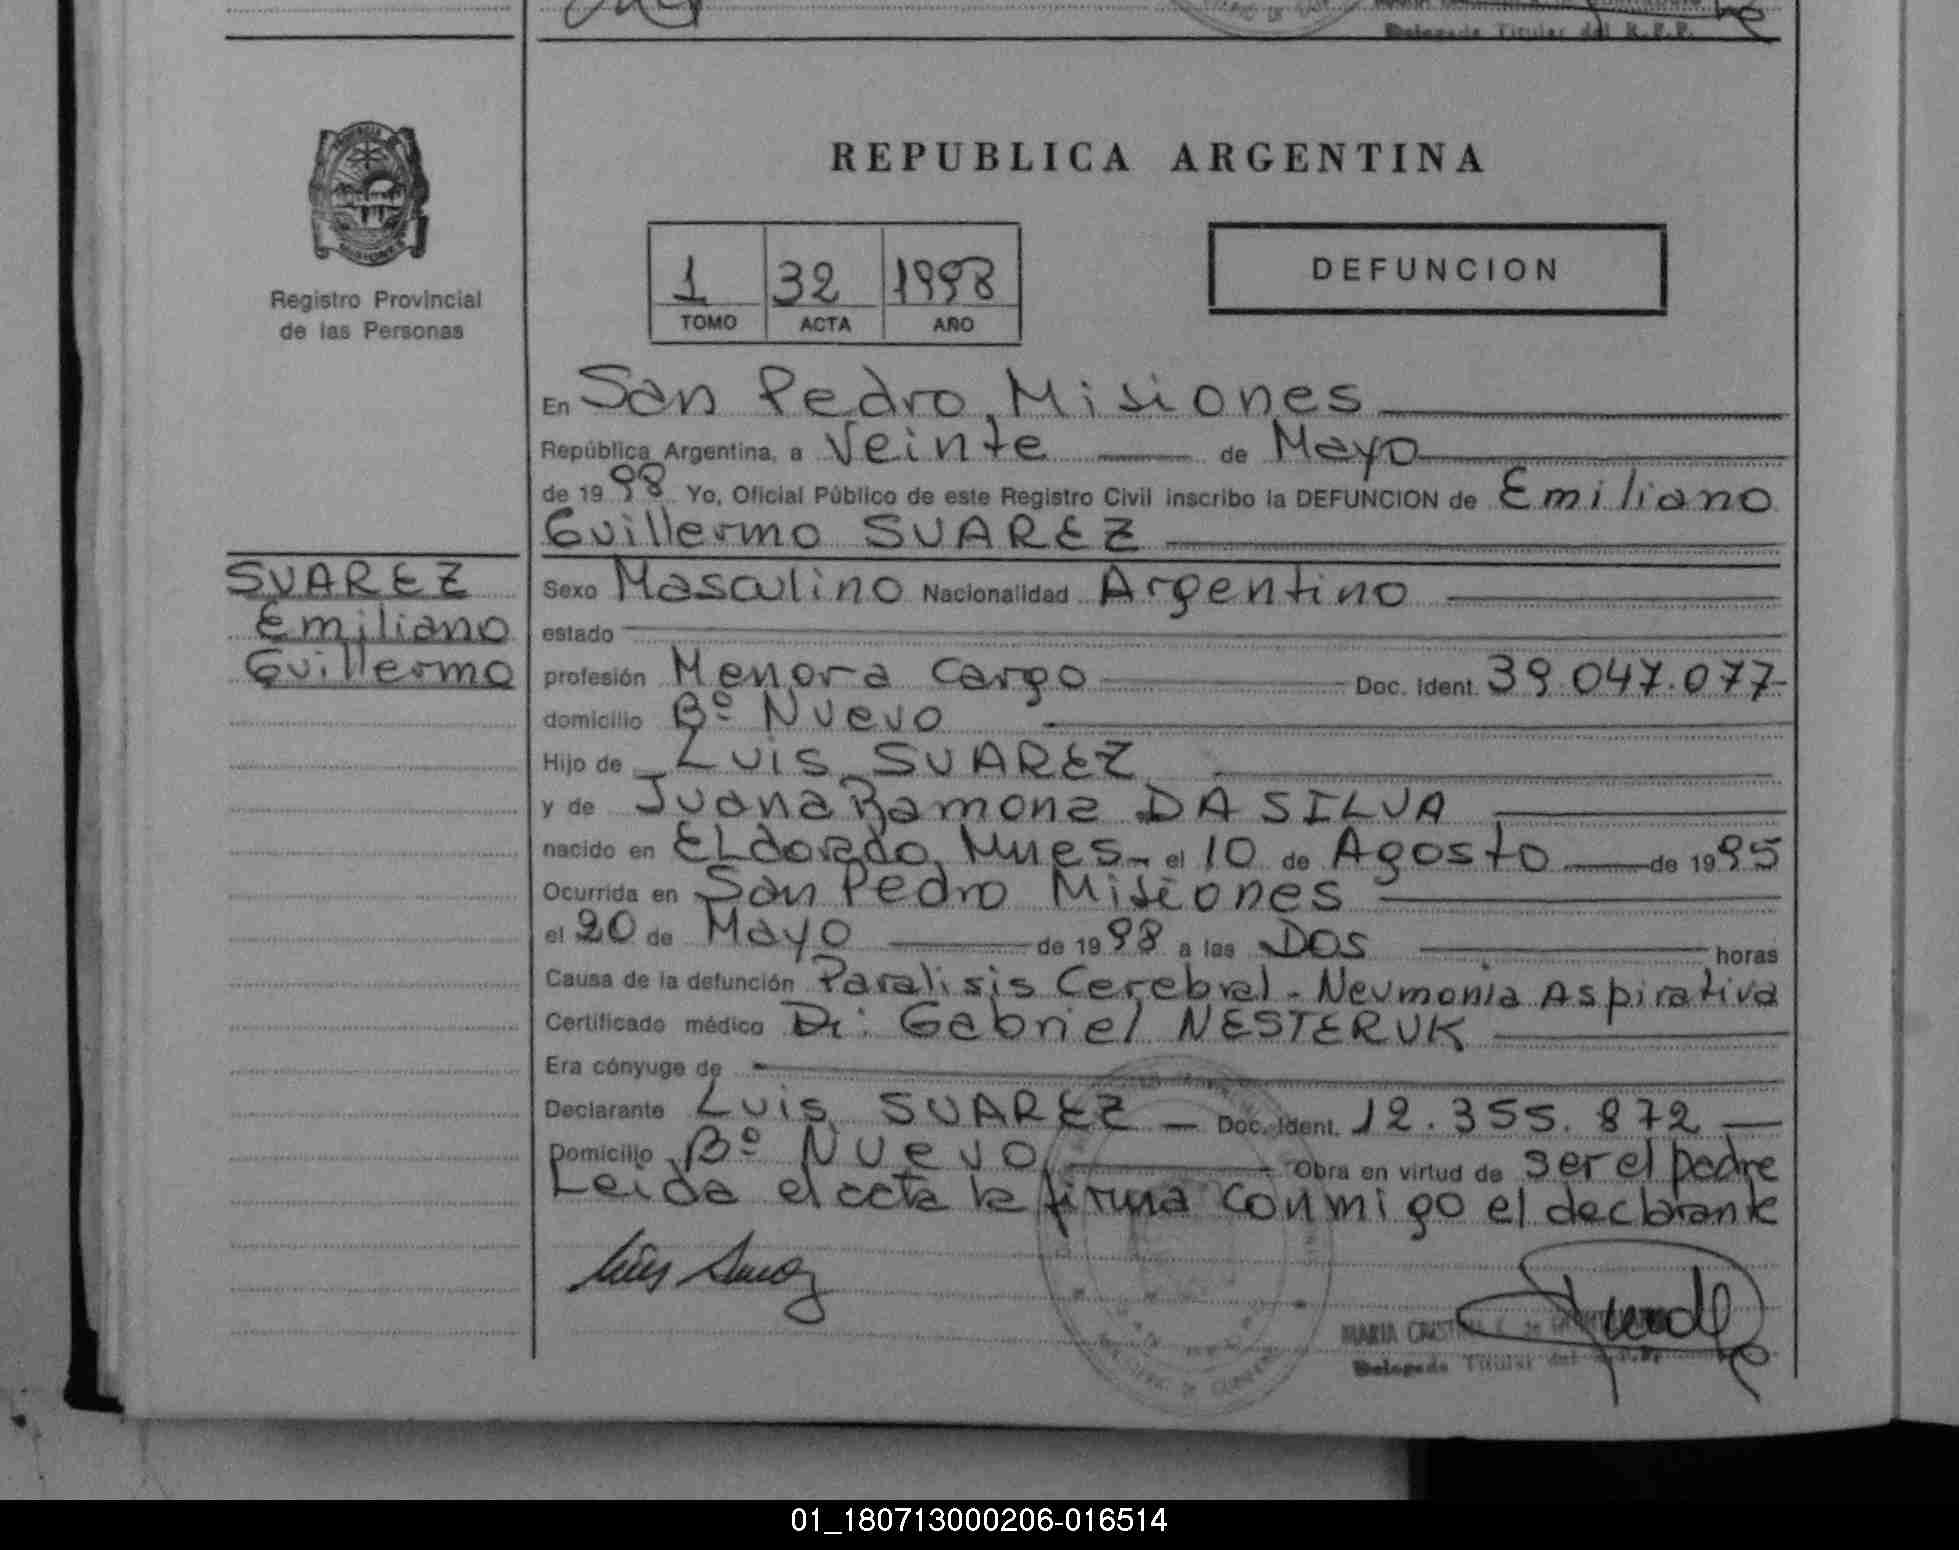 Delegada Titular del R.P.P.
REPUBLICA ARGENTINA
Registro Provincial
de las Personas
1 32 1998
TOMO ACTA AÑO
DEFUNCION
En San Pedro, Misiones
República Argentina, a Veinte de Mayo
de 1998 Yo, Oficial Público de este Registro Civil inscribo la DEFUNCION de Emiliano
Guillermo SUAREZ
SUAREZ
Emiliano
Guillermo
Sexo Masculino Nacionalidad Argentino
estado
profesión Menor a cargo Doc. Ident. 39.047.077
domicilio Bº Nuevo
Hijo de Luis SUAREZ
y de Juana Ramona DA SILVA
nacido en ELdorado, Mnes el 10 de Agosto de 1995
Ocurrida en San Pedro Misiones
el 20 de Mayo de 1998 a las Dos horas
Causa de la defunción Paralisis Cerebral - Neumonia Aspirativa
Certificado médico Dr: Gabriel NESTERUK
Era cónyuge de
Declarante Luis SUAREZ Doc. Ident. 12.355.872
Domicilio Bº Nuevo Obra en virtud de ser el padre
Leida el acta la firma conmigo el declarante
Luis Suarez
MARIA CRISTINA
Delegada Titular del R.P.P.
01_180713000206-016514